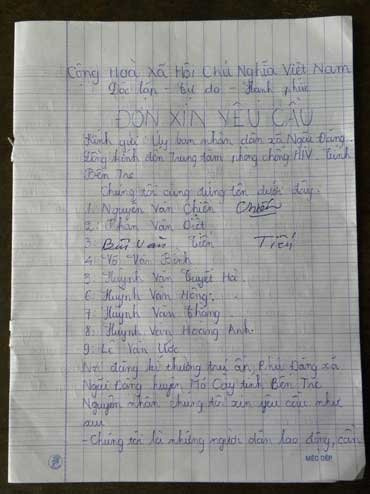 Cộng Hoà Xã Hội Chủ Nghĩa Việt Nam
Độc lập - tự do - Hạnh phúc
ĐƠN XIN YÊU CẦU
Kính gửi: Ủy ban nhân dân xã Ngãi Đăng.
Đồng kính đơn Trung tâm phòng chống HIV. Tỉnh
Bến Tre
Chúng tôi cùng đứng tên dưới đây.
1. Nguyễn Văn Chiến Chiến
2. Phan Văn Việt
3. Bùi Văn Tiến Tiến
4. Võ Văn Bình
5. Huỳnh Văn Tuyết Hà.
6. Huỳnh Văn Hồng.
7. Huỳnh Văn Thắng.
8. Huỳnh Văn Hoàng Anh.
9. Lê Văn Ước
Nơi đăng kí thường trú ấp Phú Đăng xã
Ngãi Đăng huyện Mỏ Cày tỉnh Bến Tre
Nguyên nhân chúng tôi xin yêu cầu như
sau
- Chúng tôi là những người dân lao động, cần
MÈO DẸP